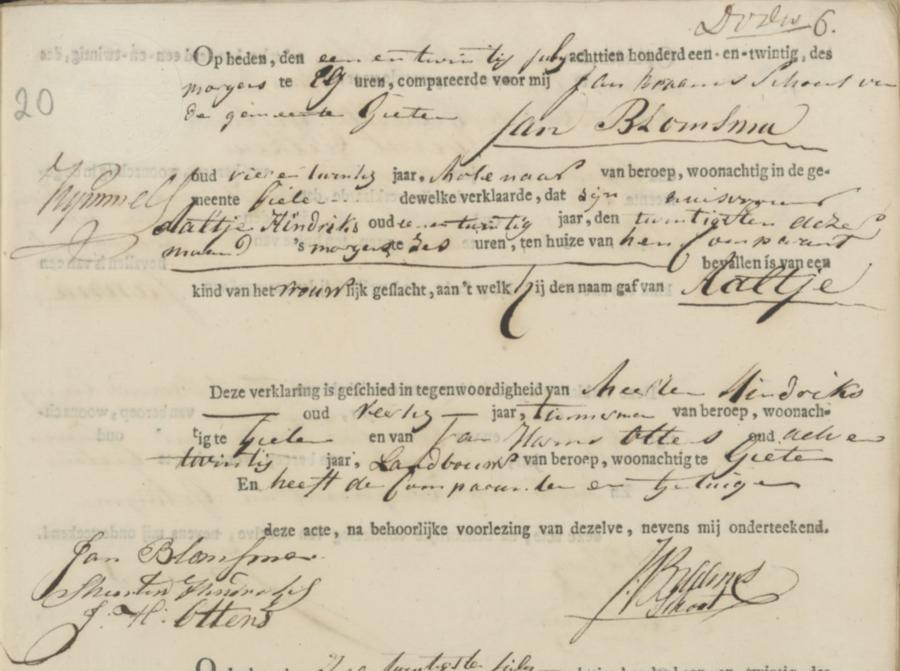 6.
20
Op heden, den een en twintig july achttien honderd een-en-twintig, des
morgens te uren, compareerde voor mij Jan Schout van
de gemeente Gieten
Jan Blomsma
oud vier en twintig jaar, Molenaar van beroep, woonachtig in de ge-
meente Gieten dewelke verklaarde, dat zijn huisvrouw
Aaltje Hindriks oud een en twintig jaar, den twintigsten dezer
maand 's morgens te zes uren, ten huize van hem Comparant
bevallen is van een
kind van het vrouwlijk geslacht, aan 't welk hij den naam gaf van Aaltje
Deze verklaring is geschied in tegenwoordigheid van Hindriks
oud veertig jaar, timmerman van beroep, woonach-
tig te Gieten en van Jan Harms Ottens oud acht en
twintig jaar, Landbouwer van beroep, woonachtig te Gieten
En heeft de Comparanten en getuigen
deze acte, na behoorlijke voorlezing van dezelve, nevens mij onderteekend.
Jan Blomsma
Hindriks
J. H. Ottens
Schout